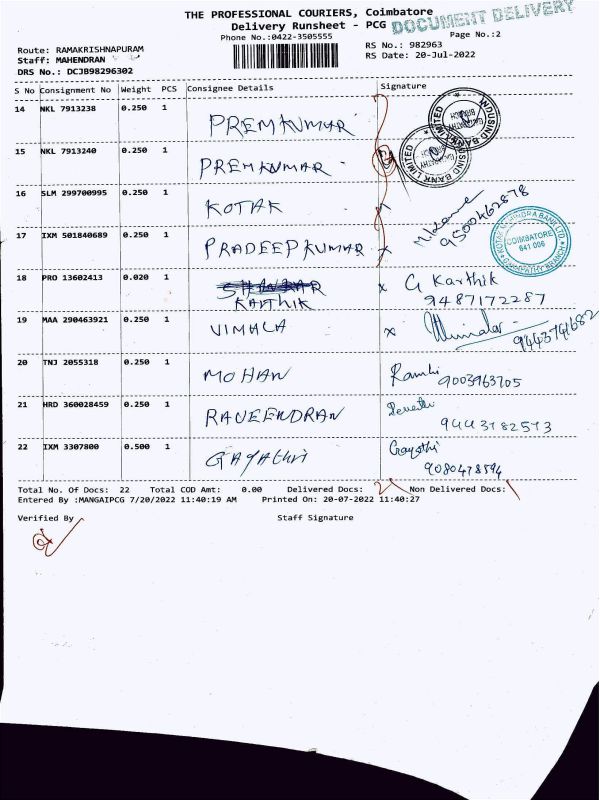 THE PROFESSIONAL COURIERS, Coimbatore
Delivery Runsheet - PCG
DOCUMENT DELIVERY
Phone No.:0422-3505555
Page No.:2
Route: RAMAKRISHNAPURAM
RS No.: 982963
Staff: MAHENDRAN
RS Date: 20-Jul-2022
DRS No.: DCJB98296302
S No Consignment No Weight PCS Consignee Details Signature
14 NKL 7913238 0.250 1 PREMKUMAR
INDUSIND BANK LIMITED
15 NKL 7913240 0.250 1 PREMKUMAR
INDUSIND BANK LIMITED
16 SLM 299700995 0.250 1 KOTAK
9500462878
17 IXM 501840689 0.250 1 PRADEEPKUMAR x
KOTAK MAHINDRA BANK LTD
COIMBATORE
641 006
GANAPATHY BRANCH
18 PRO 13602413 0.020 1 KARTHIK x G Karthik
9487172287
19 MAA 290463921 0.250 1 VIMALA x
9443741682
20 TNJ 2055318 0.250 1 MOHAN
9003963705
21 HRD 360028459 0.250 1 RAVEENDRAN
9443782573
22 IXM 3307800 0.500 1 GAyAthri Gayathi
9080478594
Total No. Of Docs: 22 Total COD Amt: 0.00 Delivered Docs: Non Delivered Docs:
Entered By :MANGAIPCG 7/20/2022 11:40:19 AM Printed On: 20-07-2022 11:40:27
Verified By Staff Signature